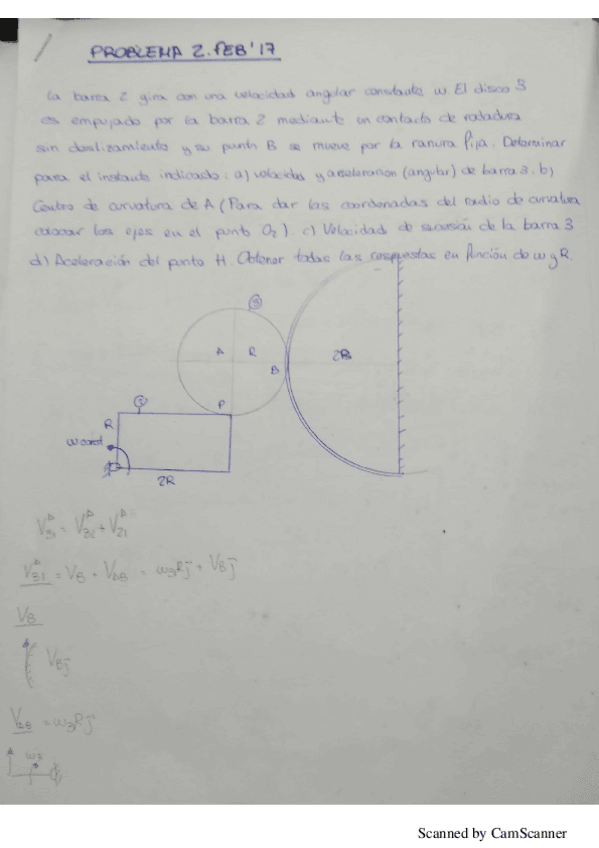 PROBLEMA 2. FEB'17
La barra 2 gira con una velocidad angular constante w. El disco 3
es empujado por la barra 2 mediante un contacto de rodadura
sin deslizamiento y su punto B se mueve por la ranura fija. Determinar
para el instante indicado: a) velocidad y aceleracion (angular) de barra 3. b)
Centro de curvatura de A (Para dar las coordenadas del radio de curvatura
colocar los ejes en el punto O2). c) Velocidad de sucesión de la barra 3
d) Aceleración del punto H. Obtener todas las respuestas en función de w y R.
3
A R
B
2R
2
P
R
w const
2R
V31^A = V32^A + V21^A
V31^A = VB + VAB = w3Rj + VBj
VB
VBj
VAB = w3Rj
w3
Scanned by CamScanner